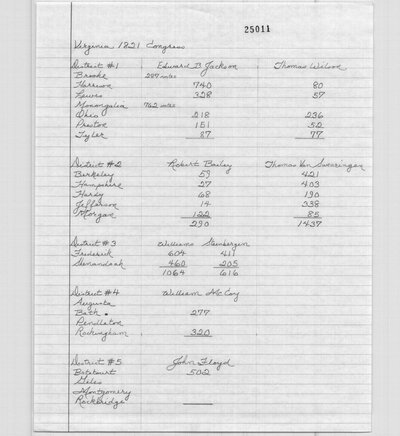 25011
Virginia 1821 Congress
District #1 Edward B Jackson Thomas Wilson
Brooke 287 votes
Harrison 740 80
Lewis 328 57
Monongalia 762 votes
Ohio 218 236
Preston 151 52
Tyler 87 77
District #2 Robert Bailey Thomas Van Swearingen
Berkeley 59 421
Hampshire 27 403
Hardy 68 190
Jefferson 14 338
Morgan 122 85
290 1437
District #3 Williams Steinbergen
Frederick 604 411
Shenandoah 460 205
1064 616
District #4 William McCoy
Augusta
Bath 277
Pendleton
Rockingham 320
District #5 John Floyd
Botetourt 502
Giles
Montgomery
Rockbridge